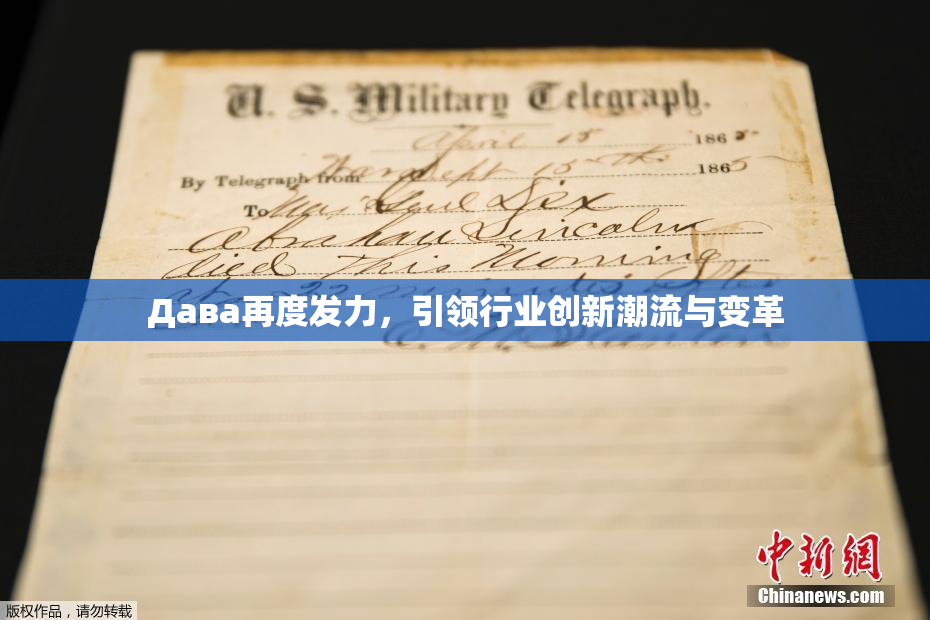 U. S. Military Telegraph.
April 15 1865-
By Telegraph from War Dept 15th 1865
To Maj Genl Dix
Abraham Lincoln
died This Morning
at 22 minutes after
Дава再度发力，引领行业创新潮流与变革
E. M. Stanton
中新網
Chinanews.com
版权作品，请勿转载